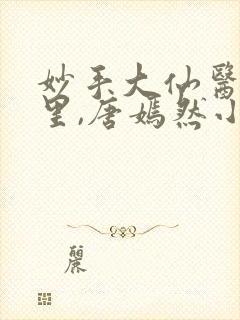 妙手大仙醫
里,唐嫣然小
麗